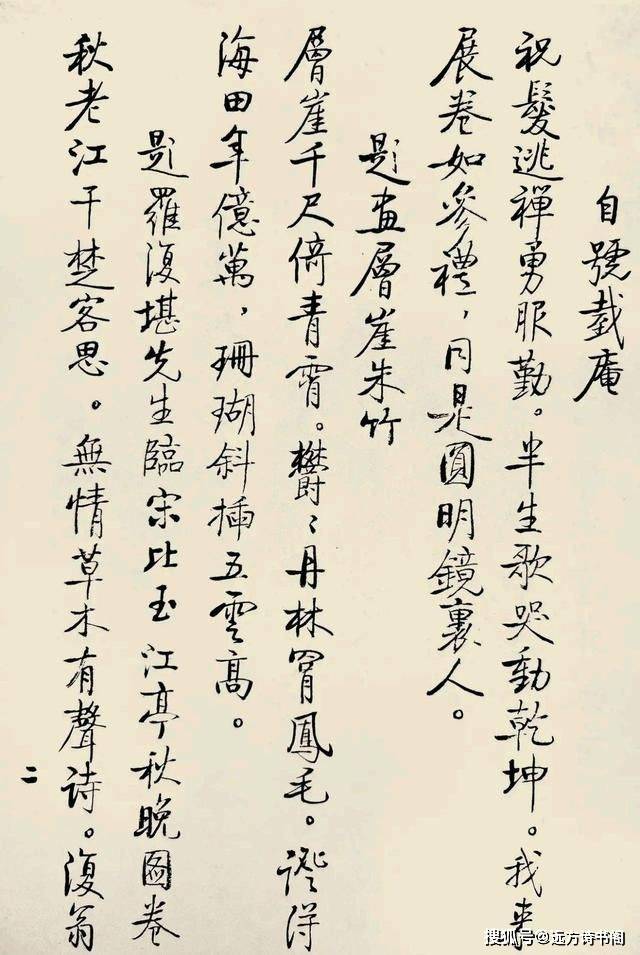 自號截庵
祝髮逃禪勇服勤。半生歌哭動乾坤。我來
展卷如參禮，同是圓明鏡裏人。
題畫層崖朱竹
層崖千尺倚青霄。欝〻丹林罥鳳毛。證得
海田年億萬，珊瑚斜插五雲高。
題羅復堪先生臨宋比玉江亭秋晚圖卷
秋老江干楚客思。無情草木有聲詩。復翁
二
搜狐号@远方诗书阁